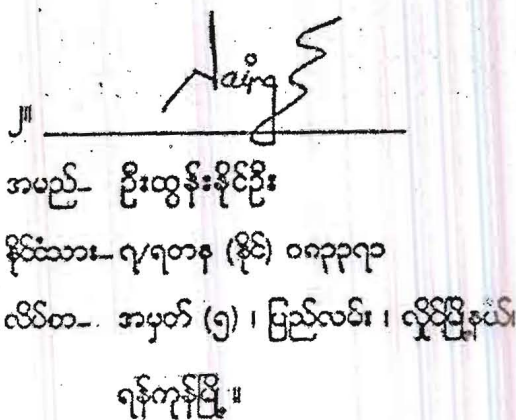 ၂။
အမည်– ဦးထွန်းနိုင်ဦး
နိုင်ငံသား– ၇/ရတန (နိုင်) ၀၈၃၃၇၁
လိပ်စာ– အမှတ် (၅) ၊ ပြည်လမ်း ၊ လှိုင်မြို့နယ်၊
ရန်ကုန်မြို့ ။